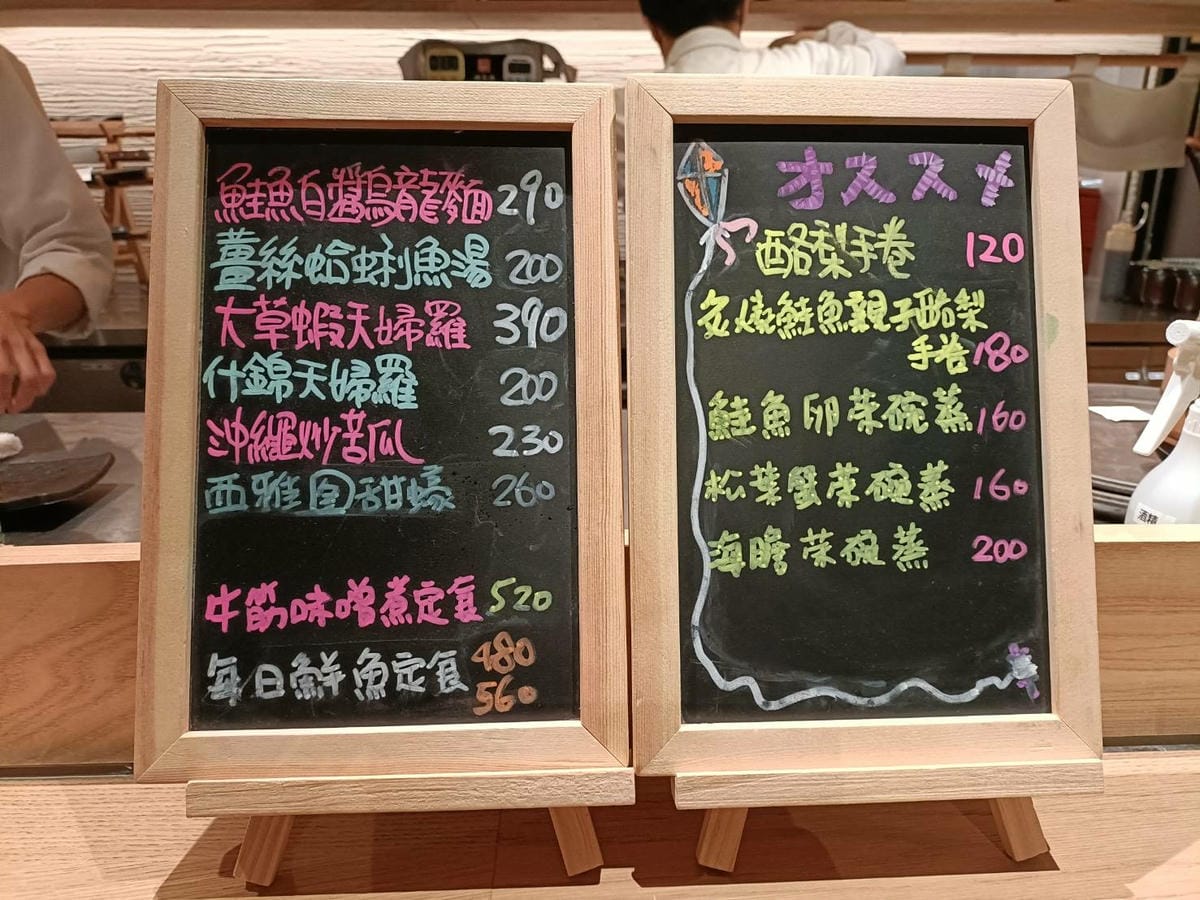 鮭魚白醬烏龍麵 290
薑絲蛤蜊魚湯 200
大草蝦天婦羅 390
什錦天婦羅 200
沖繩炒苦瓜 230
西雅圖甜蠔 260
牛筋味噌煮定食 520
每日鮮魚定食 480
560
オススメ
酪梨手卷 120
炙燒鮭魚親子酪梨
手卷 180
鮭魚卵茶碗蒸 160
松葉蟹茶碗蒸 160
海膽茶碗蒸 200
酒精